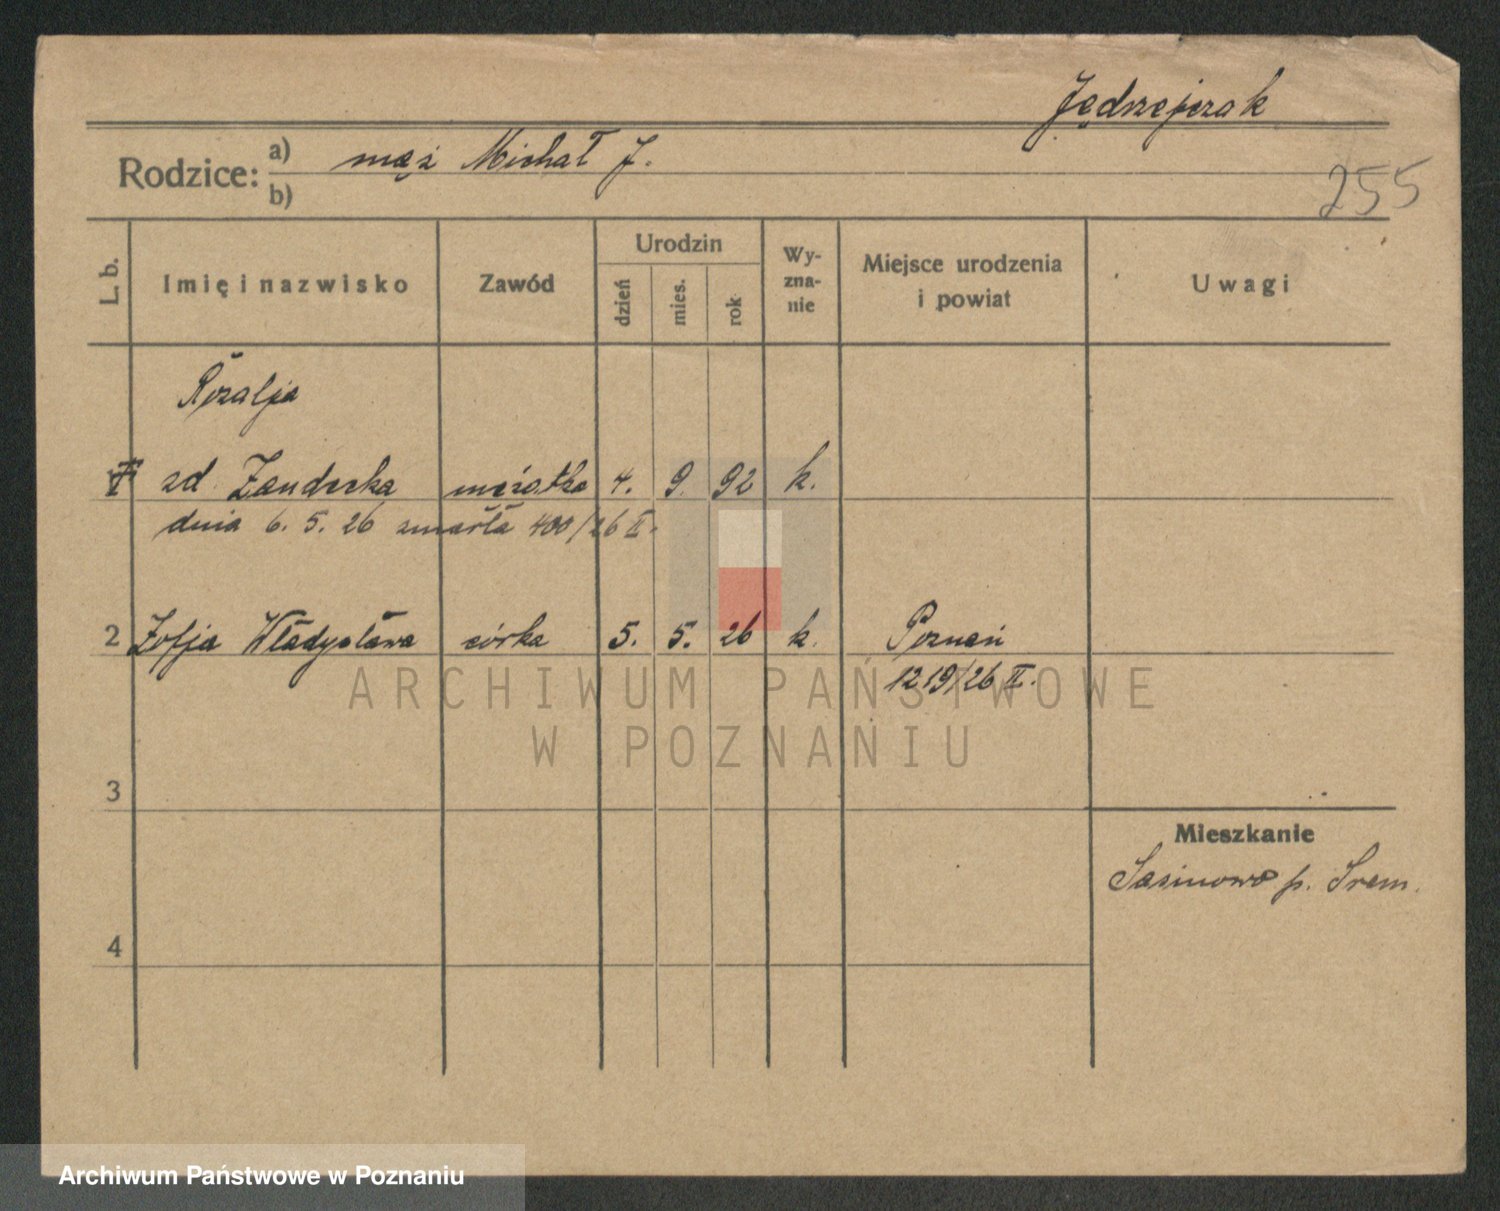 Jędrzejczak
Rodzice: a) mąż Michał J.
b)
255
L. b. Imię i nazwisko Zawód Urodzin dzień mies. rok Wy-zna-nie Miejsce urodzenia i powiat Uwagi
Rozalja
1 zd. Zandecka mężatka 4. 9. 92 k.
dnia 6. 5. 26 zmarła 400/26 II.
2 Zofja Władysława córka 5. 5. 26 k. Poznań
1219/26 II.
ARCHIWUM PAŃSTWOWE
W POZNANIU
3
Mieszkanie
Sasinowo p. Śrem.
4
Archiwum Państwowe w Poznaniu